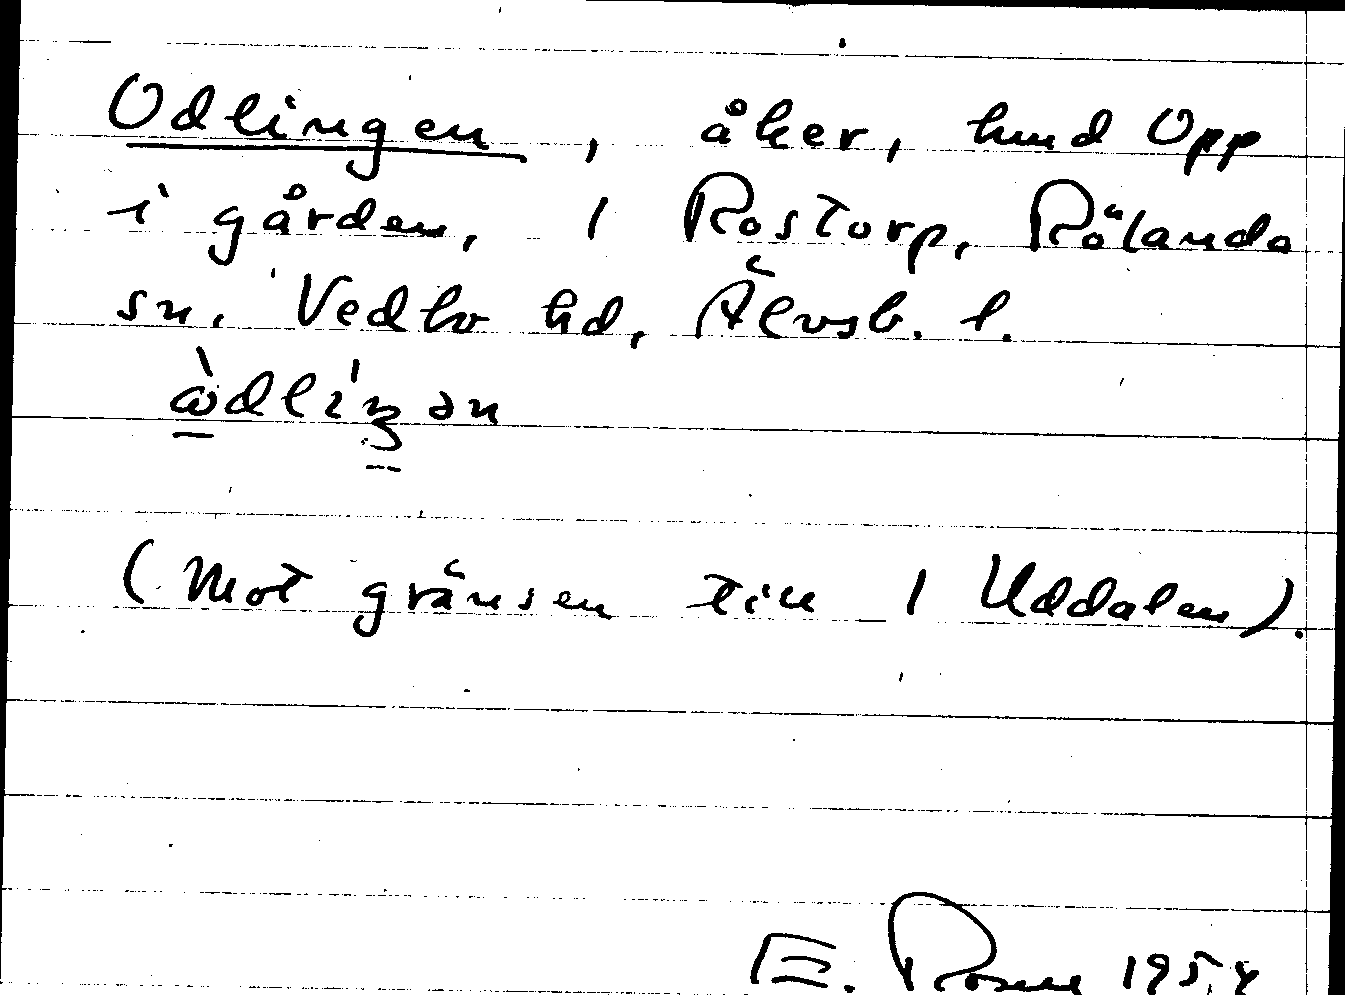 Odlingen, åker, hmd Opp
i gården, 1 Rostorp, Rölanda
sn, Vedbo hd, Älvsb. l.
(Mot gränsen till 1 Uddalen).
E. 1954